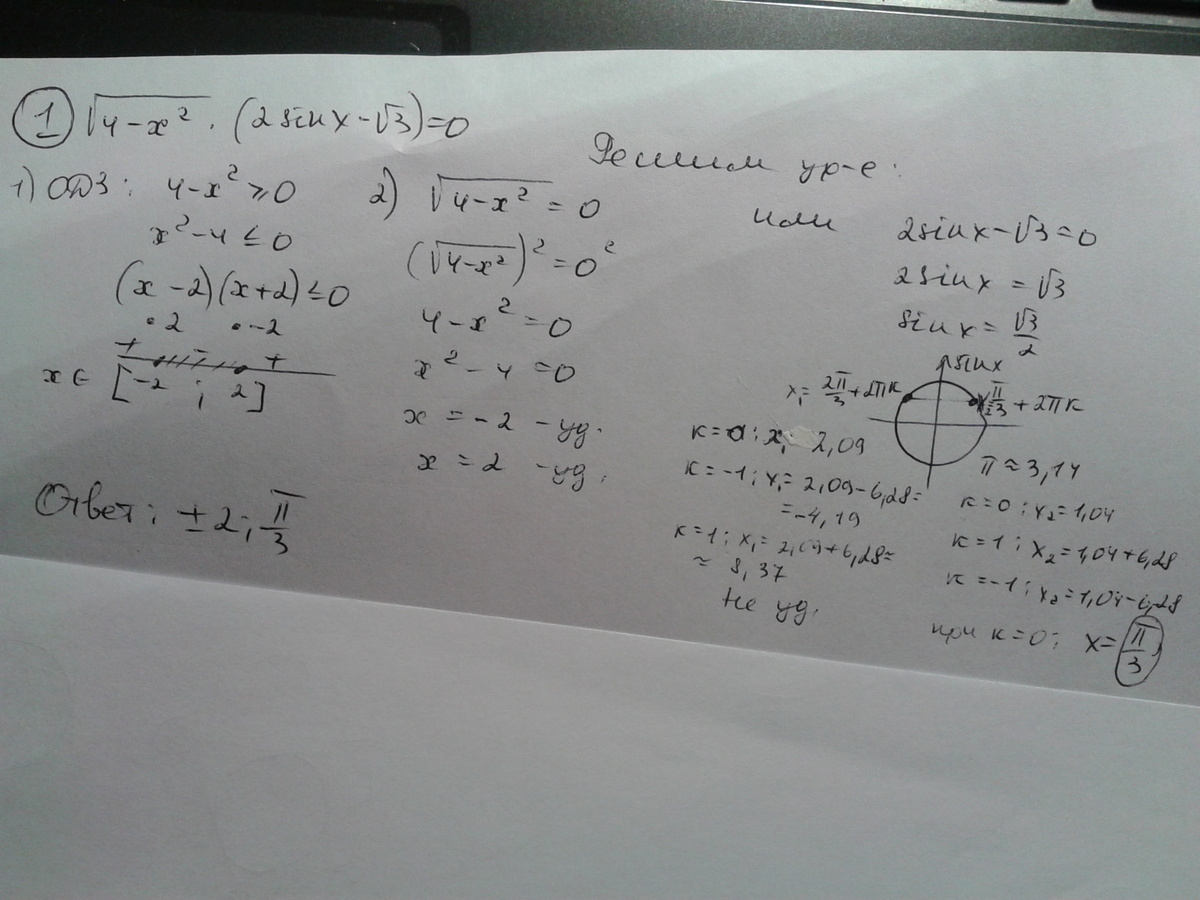 ① √4-x² · (2sinx-√3)=0
1) ОДЗ: 4-x² ≥ 0
x²-4 ≤ 0
(x-2)(x+2) ≤ 0
• 2 • -2
+ - +
x ∈ [-2 ; 2]
Решим ур-е:
2) √4-x² = 0
(√4-x²)² = 0²
4-x² = 0
x²-4 = 0
x = -2 - уд.
x = 2 - уд.
или 2sinx-√3=0
2sinx = √3
sinx = √3/2
sinx
x₁ = 2π/3 + 2πк
x₂ π/3 + 2πк
к=0; x₁ 2,09
к=-1; x₁= 2,09-6,28=
=-4,19
к=1; x₁= 2,09+6,28≈
≈ 8,37
Не уд.
π ≈ 3,14
к=0; x₂=1,04
к=1; x₂=1,04+6,28
к=-1; x₂=1,04-6,28
при к=0; x= π/3
Ответ; ±2; π/3